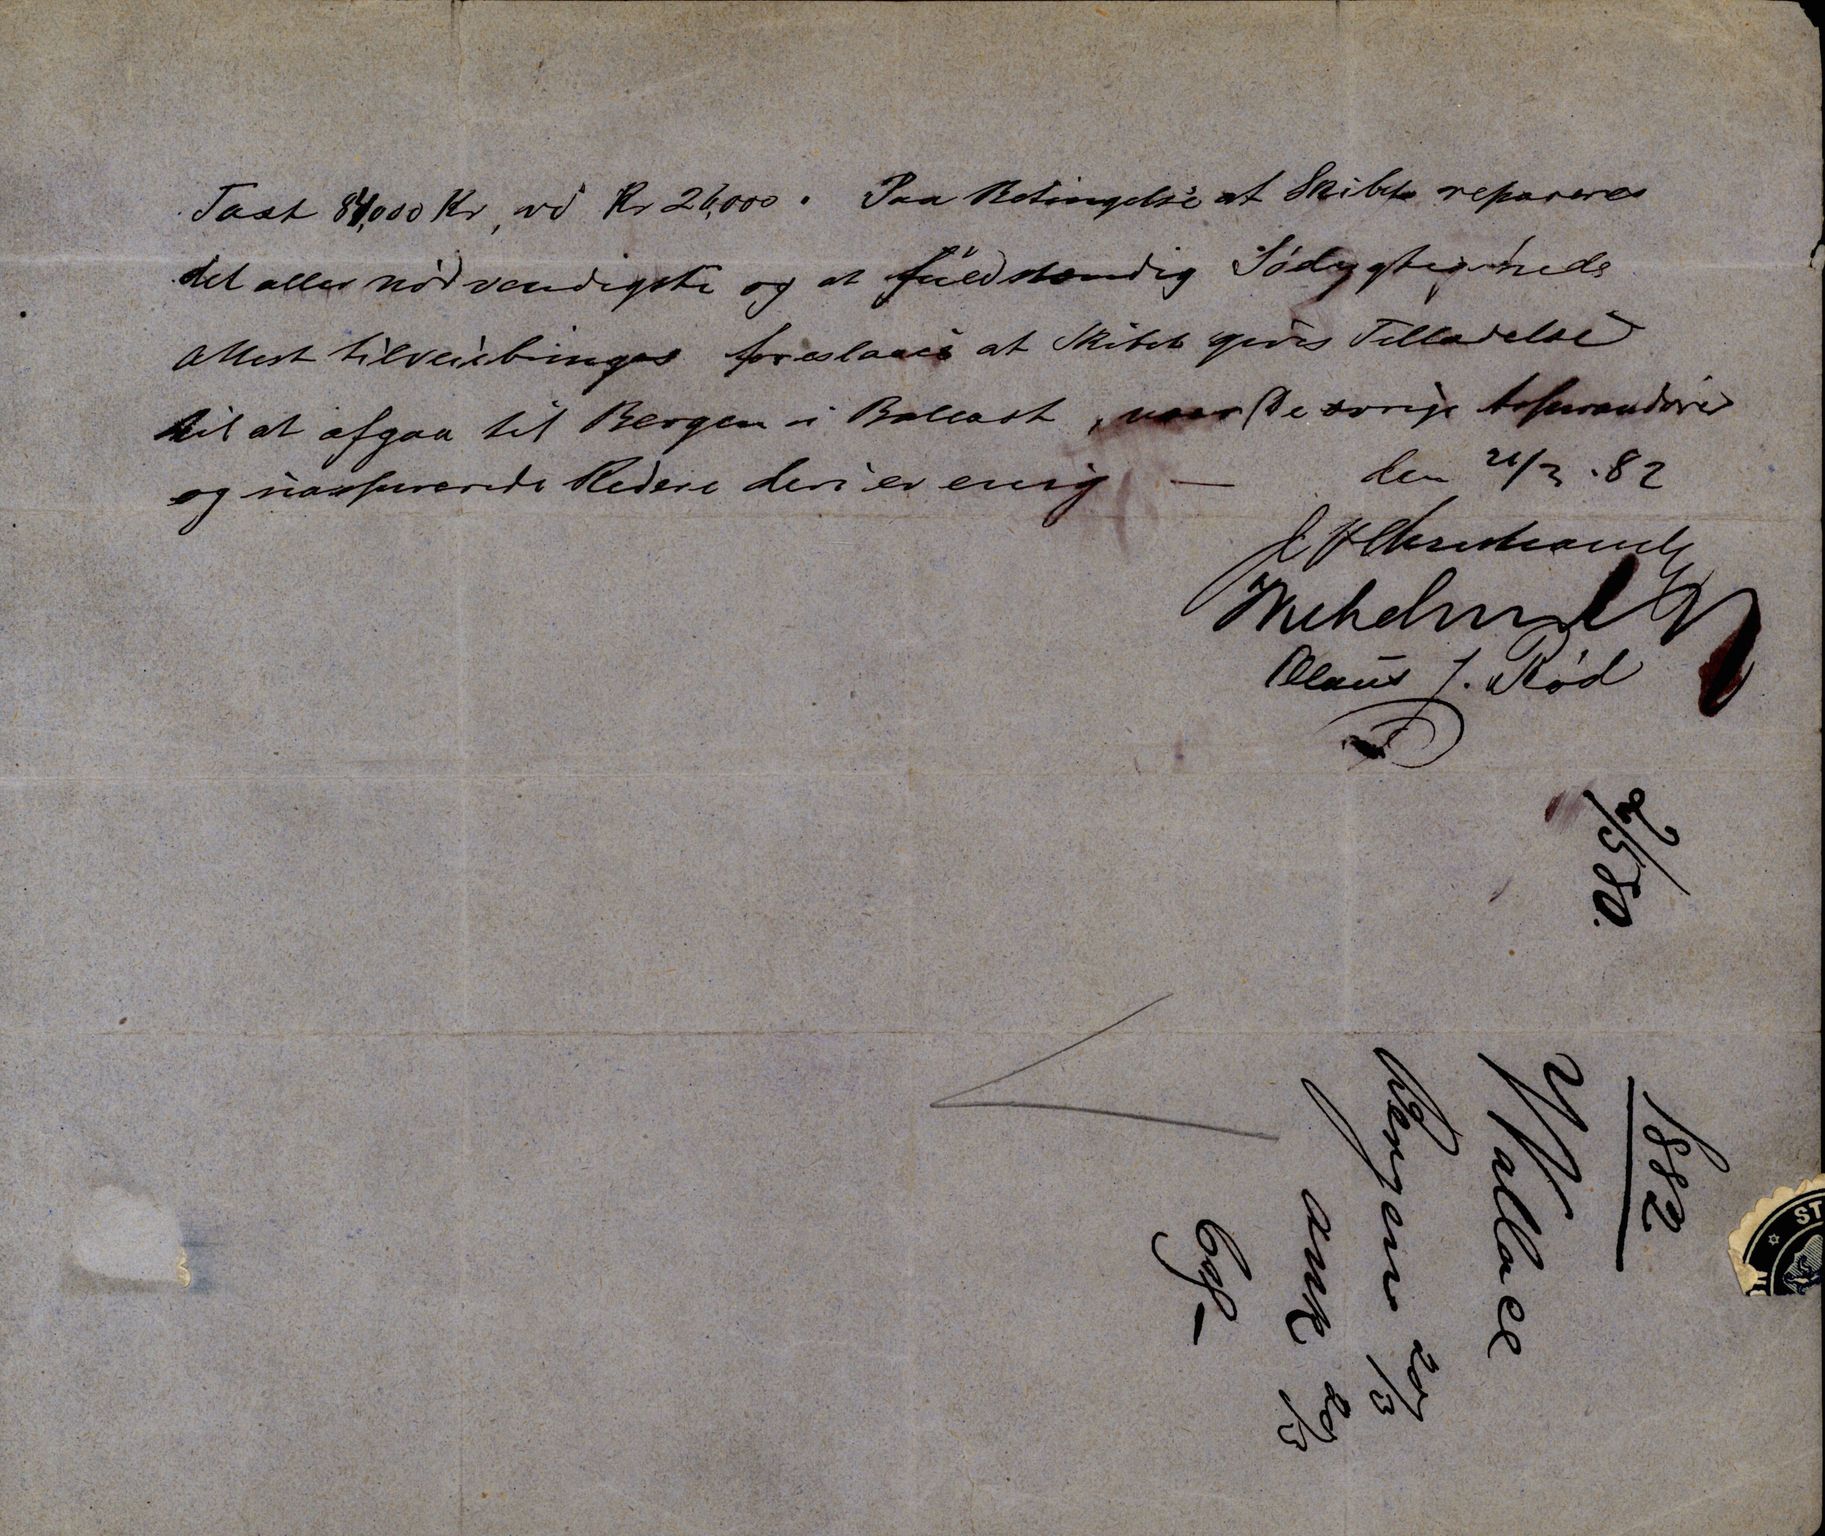 Taxt 84,000 Kr, vd Kr 26,000. Paa Betingelse at Skibet repareres
det aller nödvendigste og at fuldstændig Södygtigheds
Attest tilveiebringes foreslaaes at Skibet gives Tilladelse
til at afgaa til Bergen i Ballast, naar De övrige Assurandörer
og uassurerede Redere deri er enig —
den 21/3 .82
Olaus J. Röd
2/580.
1882
Wallace
Bergen 20/3
ank 20/3